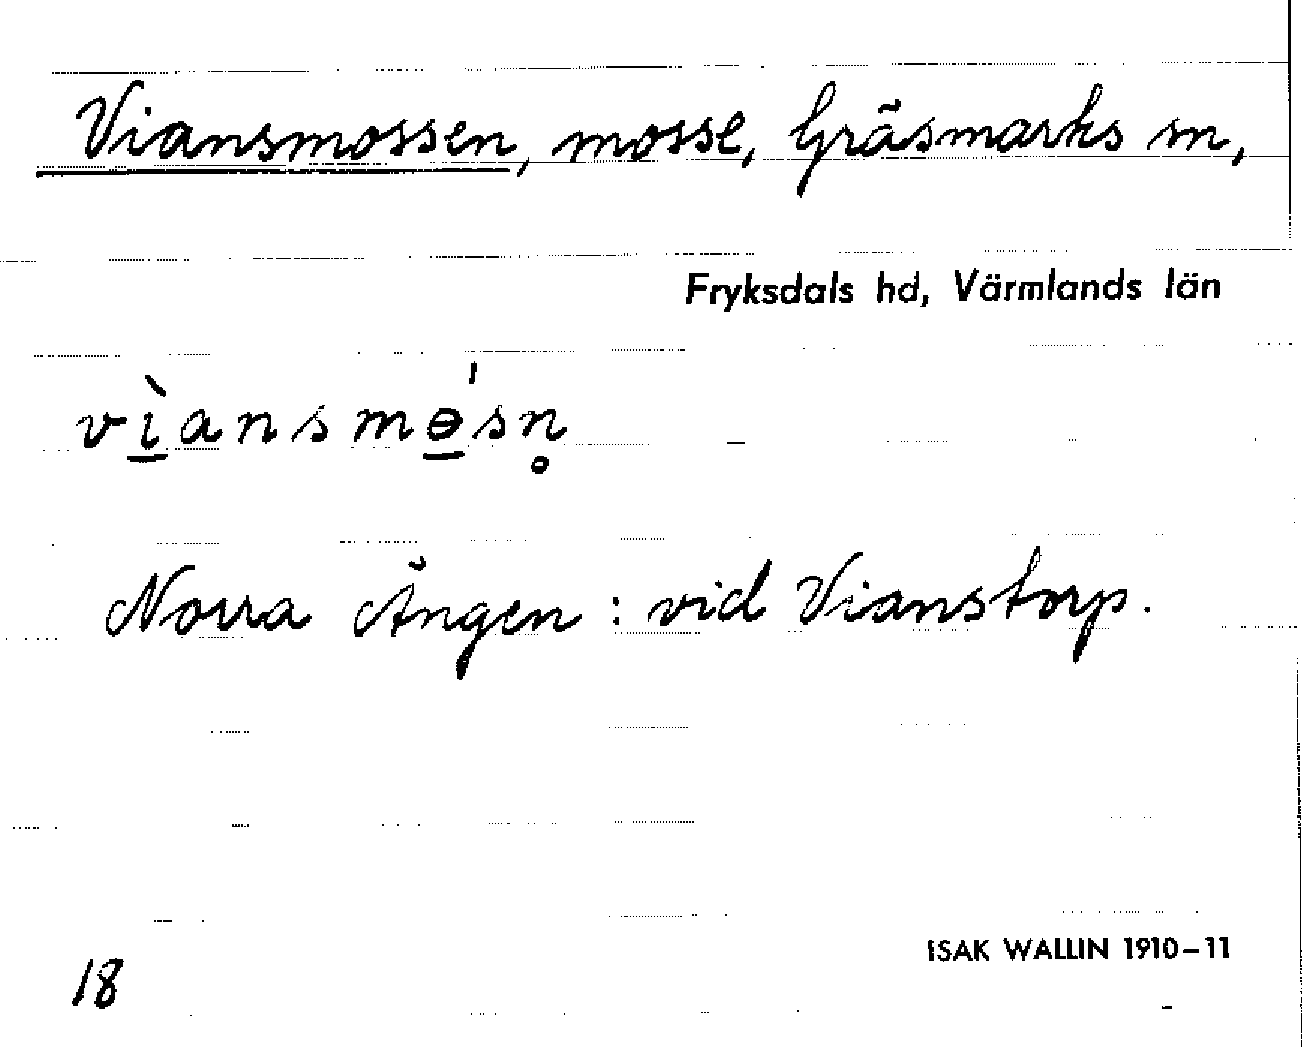 Viansmossen, mosse, Gräsmarks sn,
Fryksdals hd, Värmlands län
vìansmɵ́sn̥
Norra Ängen : vid Vianstorp.
ISAK WALLIN 1910–11
18